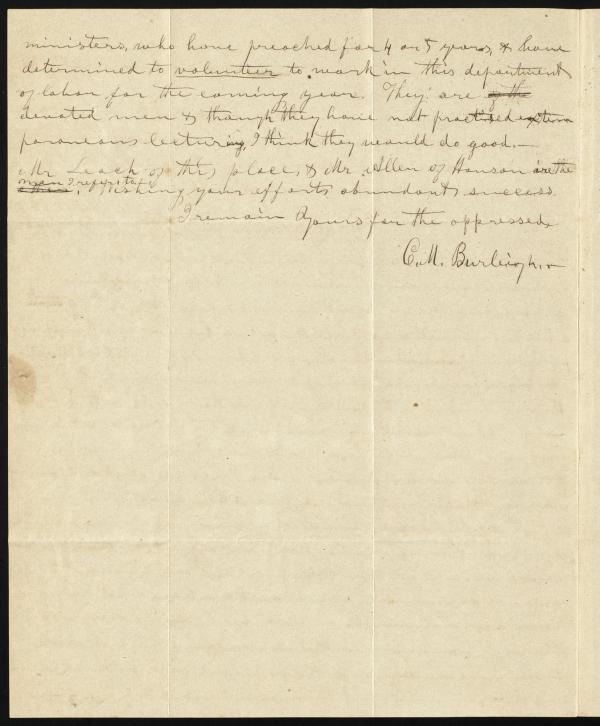 ministers, who have preached for 4 or 5 years, & have
determined to volunteer to work in this department
of labor for the coming year. They are of the
devoted men & though they have not practised extem
poraneous lecturing, I think they would do good.—
Mr Leach of this place, & Mr. Allen of Hanson are the
men I refer to.
Wishing your efforts abundant success
I remain Yours for the oppressed,
C. M. Burleigh.—